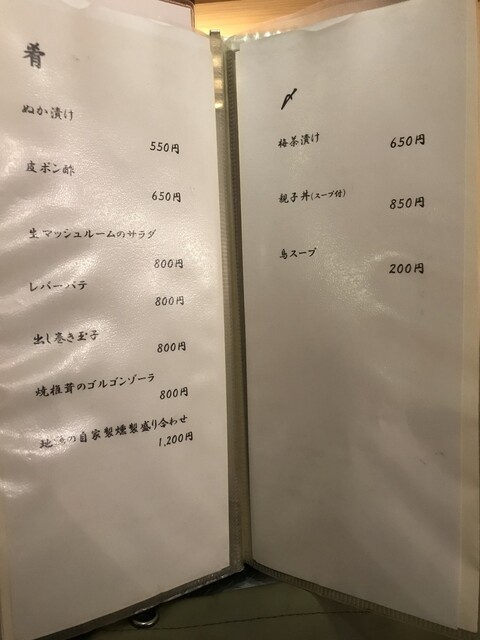 肴
ぬか漬け
550円
皮ポン酢
650円
生マッシュルームのサラダ
800円
レバーパテ
800円
出し巻き玉子
800円
焼椎茸のゴルゴンゾーラ
800円
地 の自家製燻製盛り合わせ
1,200円
〆
梅茶漬け
650円
親子丼(スープ付)
850円
鳥スープ
200円